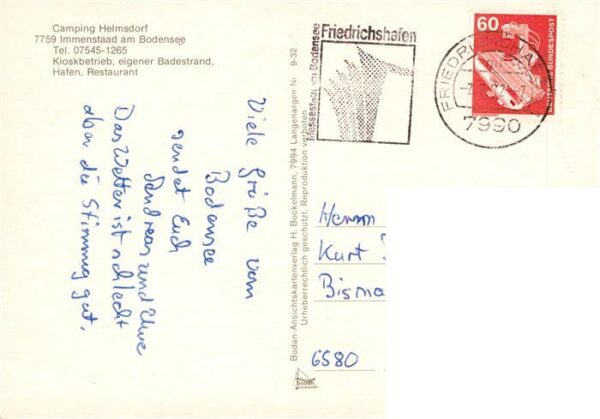 Camping Helmsdorf
7759 Immenstaad am Bodensee
Tel. 07545-1265
Kioskbetrieb, eigener Badestrand,
Hafen, Restaurant
Viele Grüße vom
Bodensee
sendet Euch
Andreas und Uwe
Das Wetter ist schlecht
aber die Stimmung gut.
Bodan-Ansichtskartenverlag H. Bockelmann, 7994 Langenargen Nr. 9-32
Urheberrechtlich geschützt. Reproduktion verboten
Messestadt am Bodensee
Friedrichshafen
60
DEUTSCHE BUNDESPOST
7990
Herrn
Kurt
Bisma
6580